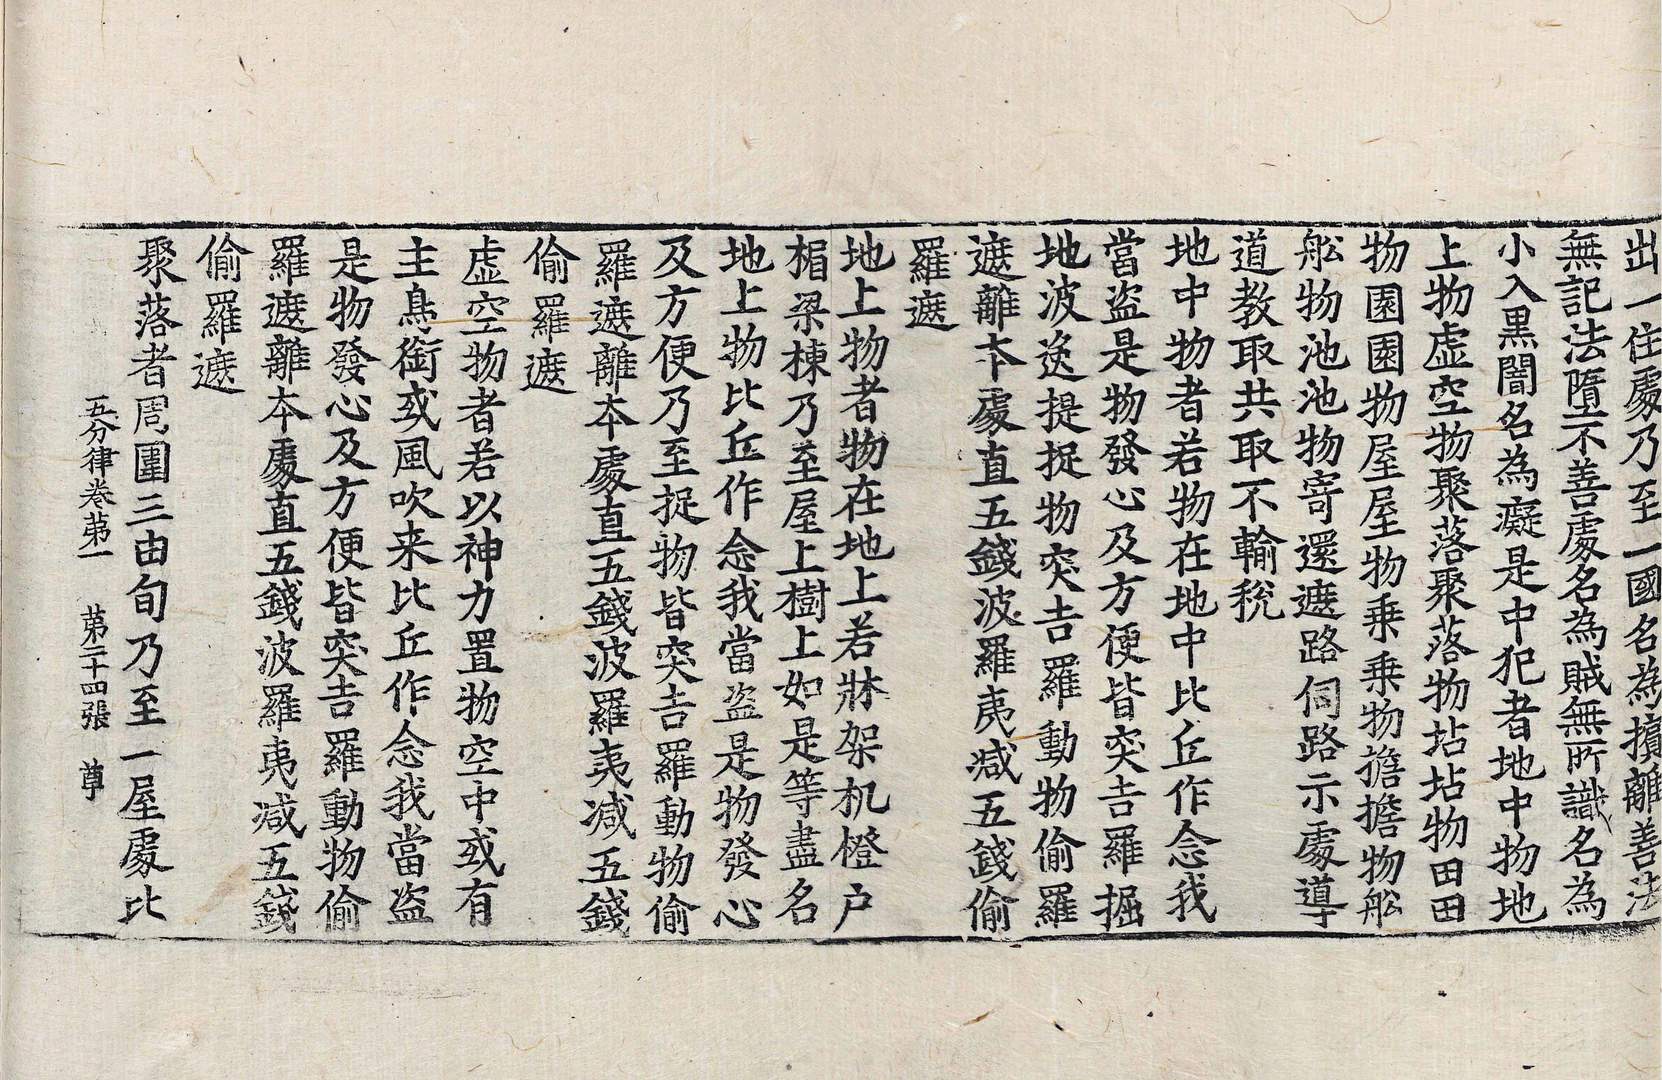 出一住處乃至一國名為擯離善法
無記法墮不善處名為賊無所識名為
小入黑闇名為癡是中犯者地中物地
上物虛空物聚落聚落物坫坫物田田
物園園物屋屋物乗乗物擔擔物舩
舩物池池物寄還遮路伺路示處導
道教取共取不輸稅
地中物者若物在地中比丘作念我
當盜是物發心及方便皆突吉羅掘
地波逸提捉物突吉羅動物偷羅
遮離本處直五錢波羅夷减五錢偷
羅遮
地上物者物在地上若牀架机橙户
楣梁棟乃至屋上樹上如是等盡名
地上物比丘作念我當盜是物發心
及方便乃至捉物皆突吉羅動物偷
羅遮離本處直五錢波羅夷减五錢
偷羅遮
虛空物者若以神力置物空中或有
主鳥銜或風吹来比丘作念我當盜
是物發心及方便皆突吉羅動物偷
羅遮離本處直五錢波羅夷减五錢
偷羅遮
五分律卷苐一 苐二十四張 尊
聚落者周圍三由旬乃至一屋處比